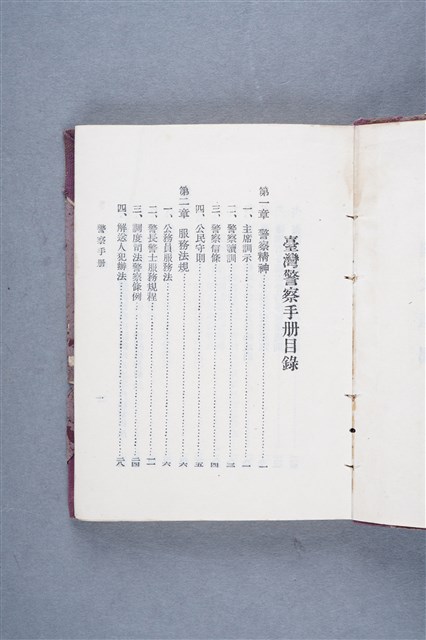 臺灣警察手册目錄
第一章 警察精神……一
一、主席訓示……一
二、警察讀訓……三
三、警察信條……四
四、公民守則……五
第二章 服務法規……六
一、公務員服務法……六
二、警長警士服務規程……
三、調度司法警察條例……二四
四、解送人犯辦法……二八
警察手册
一